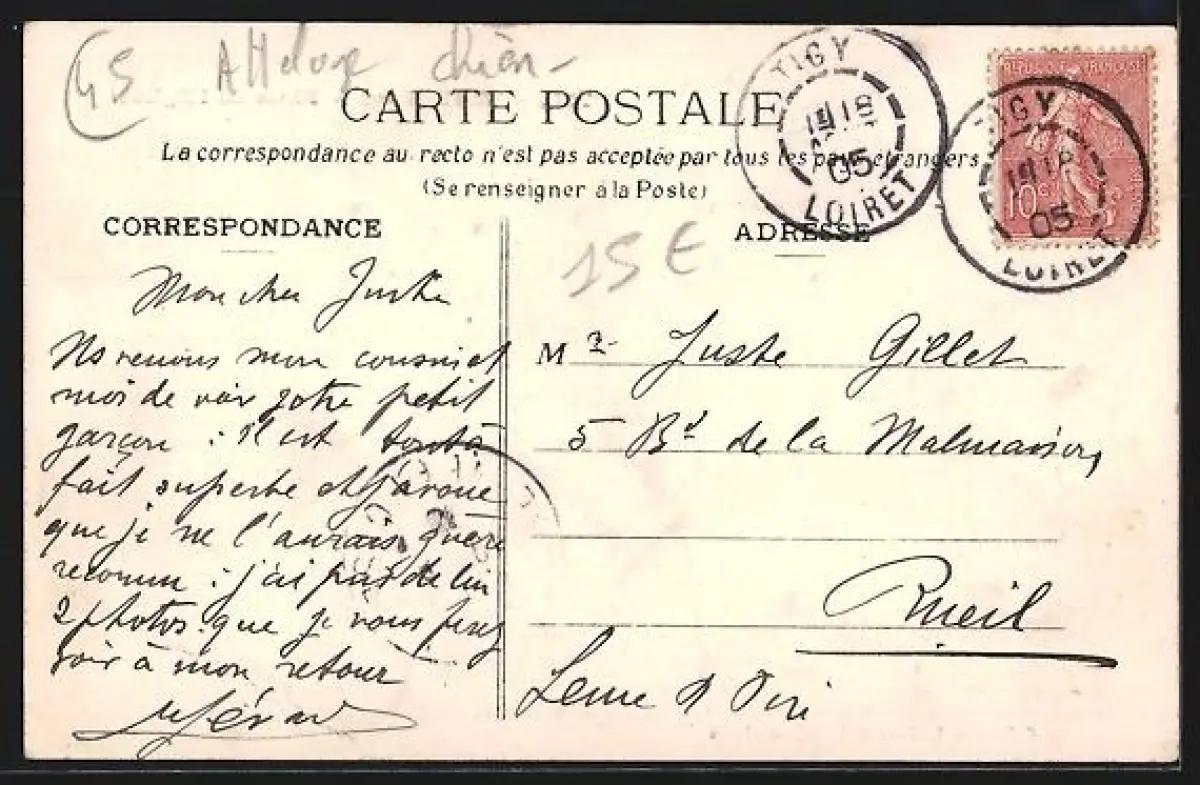 45 Attelage chien
CARTE POSTALE
La correspondance au recto n'est pas acceptée par tous les pays étrangers
(Se renseigner à la Poste)
CORRESPONDANCE
Mon cher Juste
Ns venons mon cousin et
moi de voir votre petit
garçon : il est tout à
fait superbe et j'avoue
que je ne l'aurais guère
reconnu : j'ai pris de lui
2 photos que je vous ferai
voir à mon retour
15 €
ADRESSE
Mr Juste Gillet
5 Bd de la Malmaison,
Rueil
Seine & Oise
TIGY
05
LOIRET
REPUBLIQUE FRANÇAISE
10c
TIGY
05
LOIRET